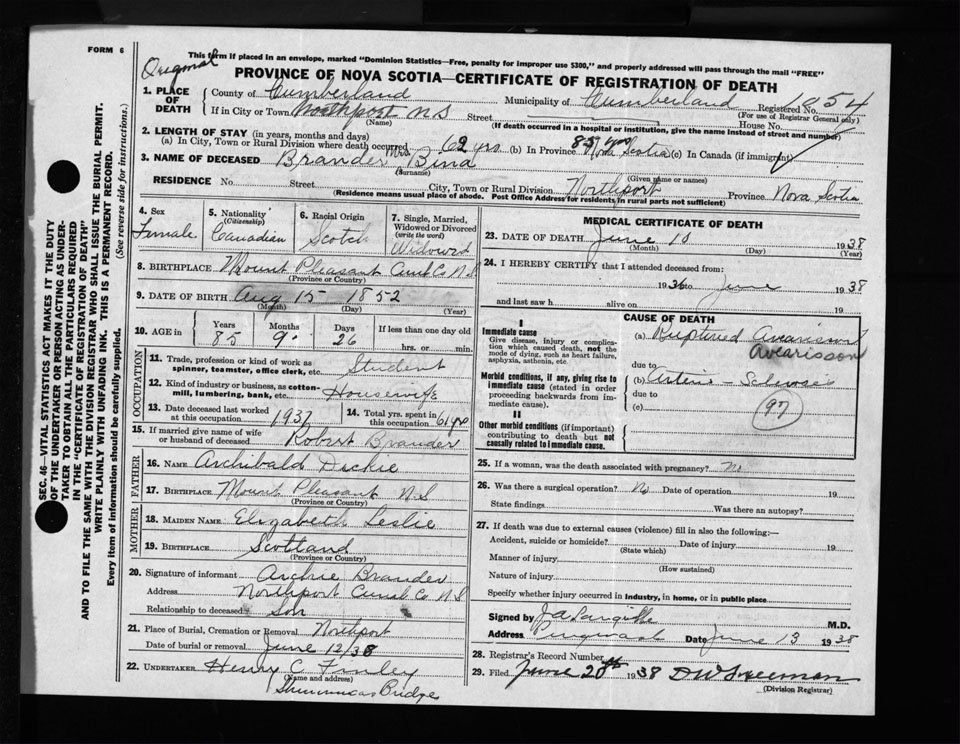 FORM 6
This form if placed in an envelope, marked "Dominion Statistics—Free, penalty for improper use $300," and properly addressed will pass through the mail "FREE"
Original
PROVINCE OF NOVA SCOTIA—CERTIFICATE OF REGISTRATION OF DEATH
1. PLACE OF DEATH
County of Cumberland Municipality of Cumberland Registered No. 1854
(For use of Registrar General only)
If in City or Town Northport N S Street House No.
(Name) (If death occurred in a hospital or institution, give the name instead of street and number)
2. LENGTH OF STAY (in years, months and days)
(a) In City, Town or Rural Division where death occurred 62 yrs (b) In Province 85 yrs Nova Scotia (c) In Canada (if immigrant)
3. NAME OF DECEASED Brander Mrs Bina
(Surname) (Given name or names)
RESIDENCE No. Street City, Town or Rural Division Northport Province Nova Scotia
(Residence means usual place of abode. Post Office Address for residents in rural parts not sufficient)
4. Sex Female
5. Nationality (Citizenship) Canadian
6. Racial Origin Scotch
7. Single, Married, Widowed or Divorced (write the word) Widowed
8. BIRTHPLACE Mount Pleasant Cumb Co N.S.
(Province or Country)
9. DATE OF BIRTH Aug 15 1852
(Month) (Day) (Year)
10. AGE in Years Months Days If less than one day old
85 9 26 hrs. or min.
OCCUPATION
11. Trade, profession or kind of work as spinner, teamster, office clerk, etc. Student
12. Kind of industry or business, as cotton-mill, lumbering, bank, etc. Housewife
13. Date deceased last worked at this occupation 1937
14. Total yrs. spent in this occupation 61 yrs
15. If married give name of wife or husband of deceased Robert Brander
FATHER
16. NAME Archibald Dickie
17. BIRTHPLACE Mount Pleasant N S
(Province or Country)
MOTHER
18. MAIDEN NAME Elizabeth Leslie
19. BIRTHPLACE Scotland
(Province or Country)
20. Signature of informant Archie Brander
Address Northport Cumb Co N S
Relationship to deceased Son
21. Place of Burial, Cremation or Removal Northport
Date of burial or removal June 12/38
22. UNDERTAKER Henry C Finley
(Name and address)
Shinimicas Bridge
MEDICAL CERTIFICATE OF DEATH
23. DATE OF DEATH June 10 1938
(Month) (Day) (Year)
24. I HEREBY CERTIFY that I attended deceased from:
1936 to June 1938
and last saw h alive on 19
CAUSE OF DEATH
I
Immediate cause
Give disease, injury or complication which caused death, not the mode of dying, such as heart failure, asphyxia, asthenia, etc.
(a) Ruptured
due to
Morbid conditions, if any, giving rise to immediate cause (stated in order proceeding backwards from immediate cause).
(b)
due to
(c)
97
II
Other morbid conditions (if important) contributing to death but not causally related to immediate cause.
25. If a woman, was the death associated with pregnancy? No
26. Was there a surgical operation? No Date of operation 19
State findings Was there an autopsy?
27. If death was due to external causes (violence) fill in also the following:—
Accident, suicide or homicide? Date of injury 19
(State which)
Manner of injury
(How sustained)
Nature of injury
Specify whether injury occurred in Industry, in home, or in public place
Signed by M.D.
Address Pugwash Date June 13 1938
28. Registrar's Record Number
29. Filed June 20th 1938 D W Freeman
(Division Registrar)
SEC. 46—VITAL STATISTICS ACT MAKES IT THE DUTY
OF THE UNDERTAKER OR PERSON ACTING AS UNDER-
TAKER TO OBTAIN ALL THE PARTICULARS REQUIRED
IN THE "CERTIFICATE OF REGISTRATION OF DEATH"
AND TO FILE THE SAME WITH THE DIVISION REGISTRAR WHO SHALL ISSUE THE BURIAL PERMIT.
WRITE PLAINLY WITH UNFADING INK. THIS IS A PERMANENT RECORD.
Every item of information should be carefully supplied. (See reverse side for instructions.)